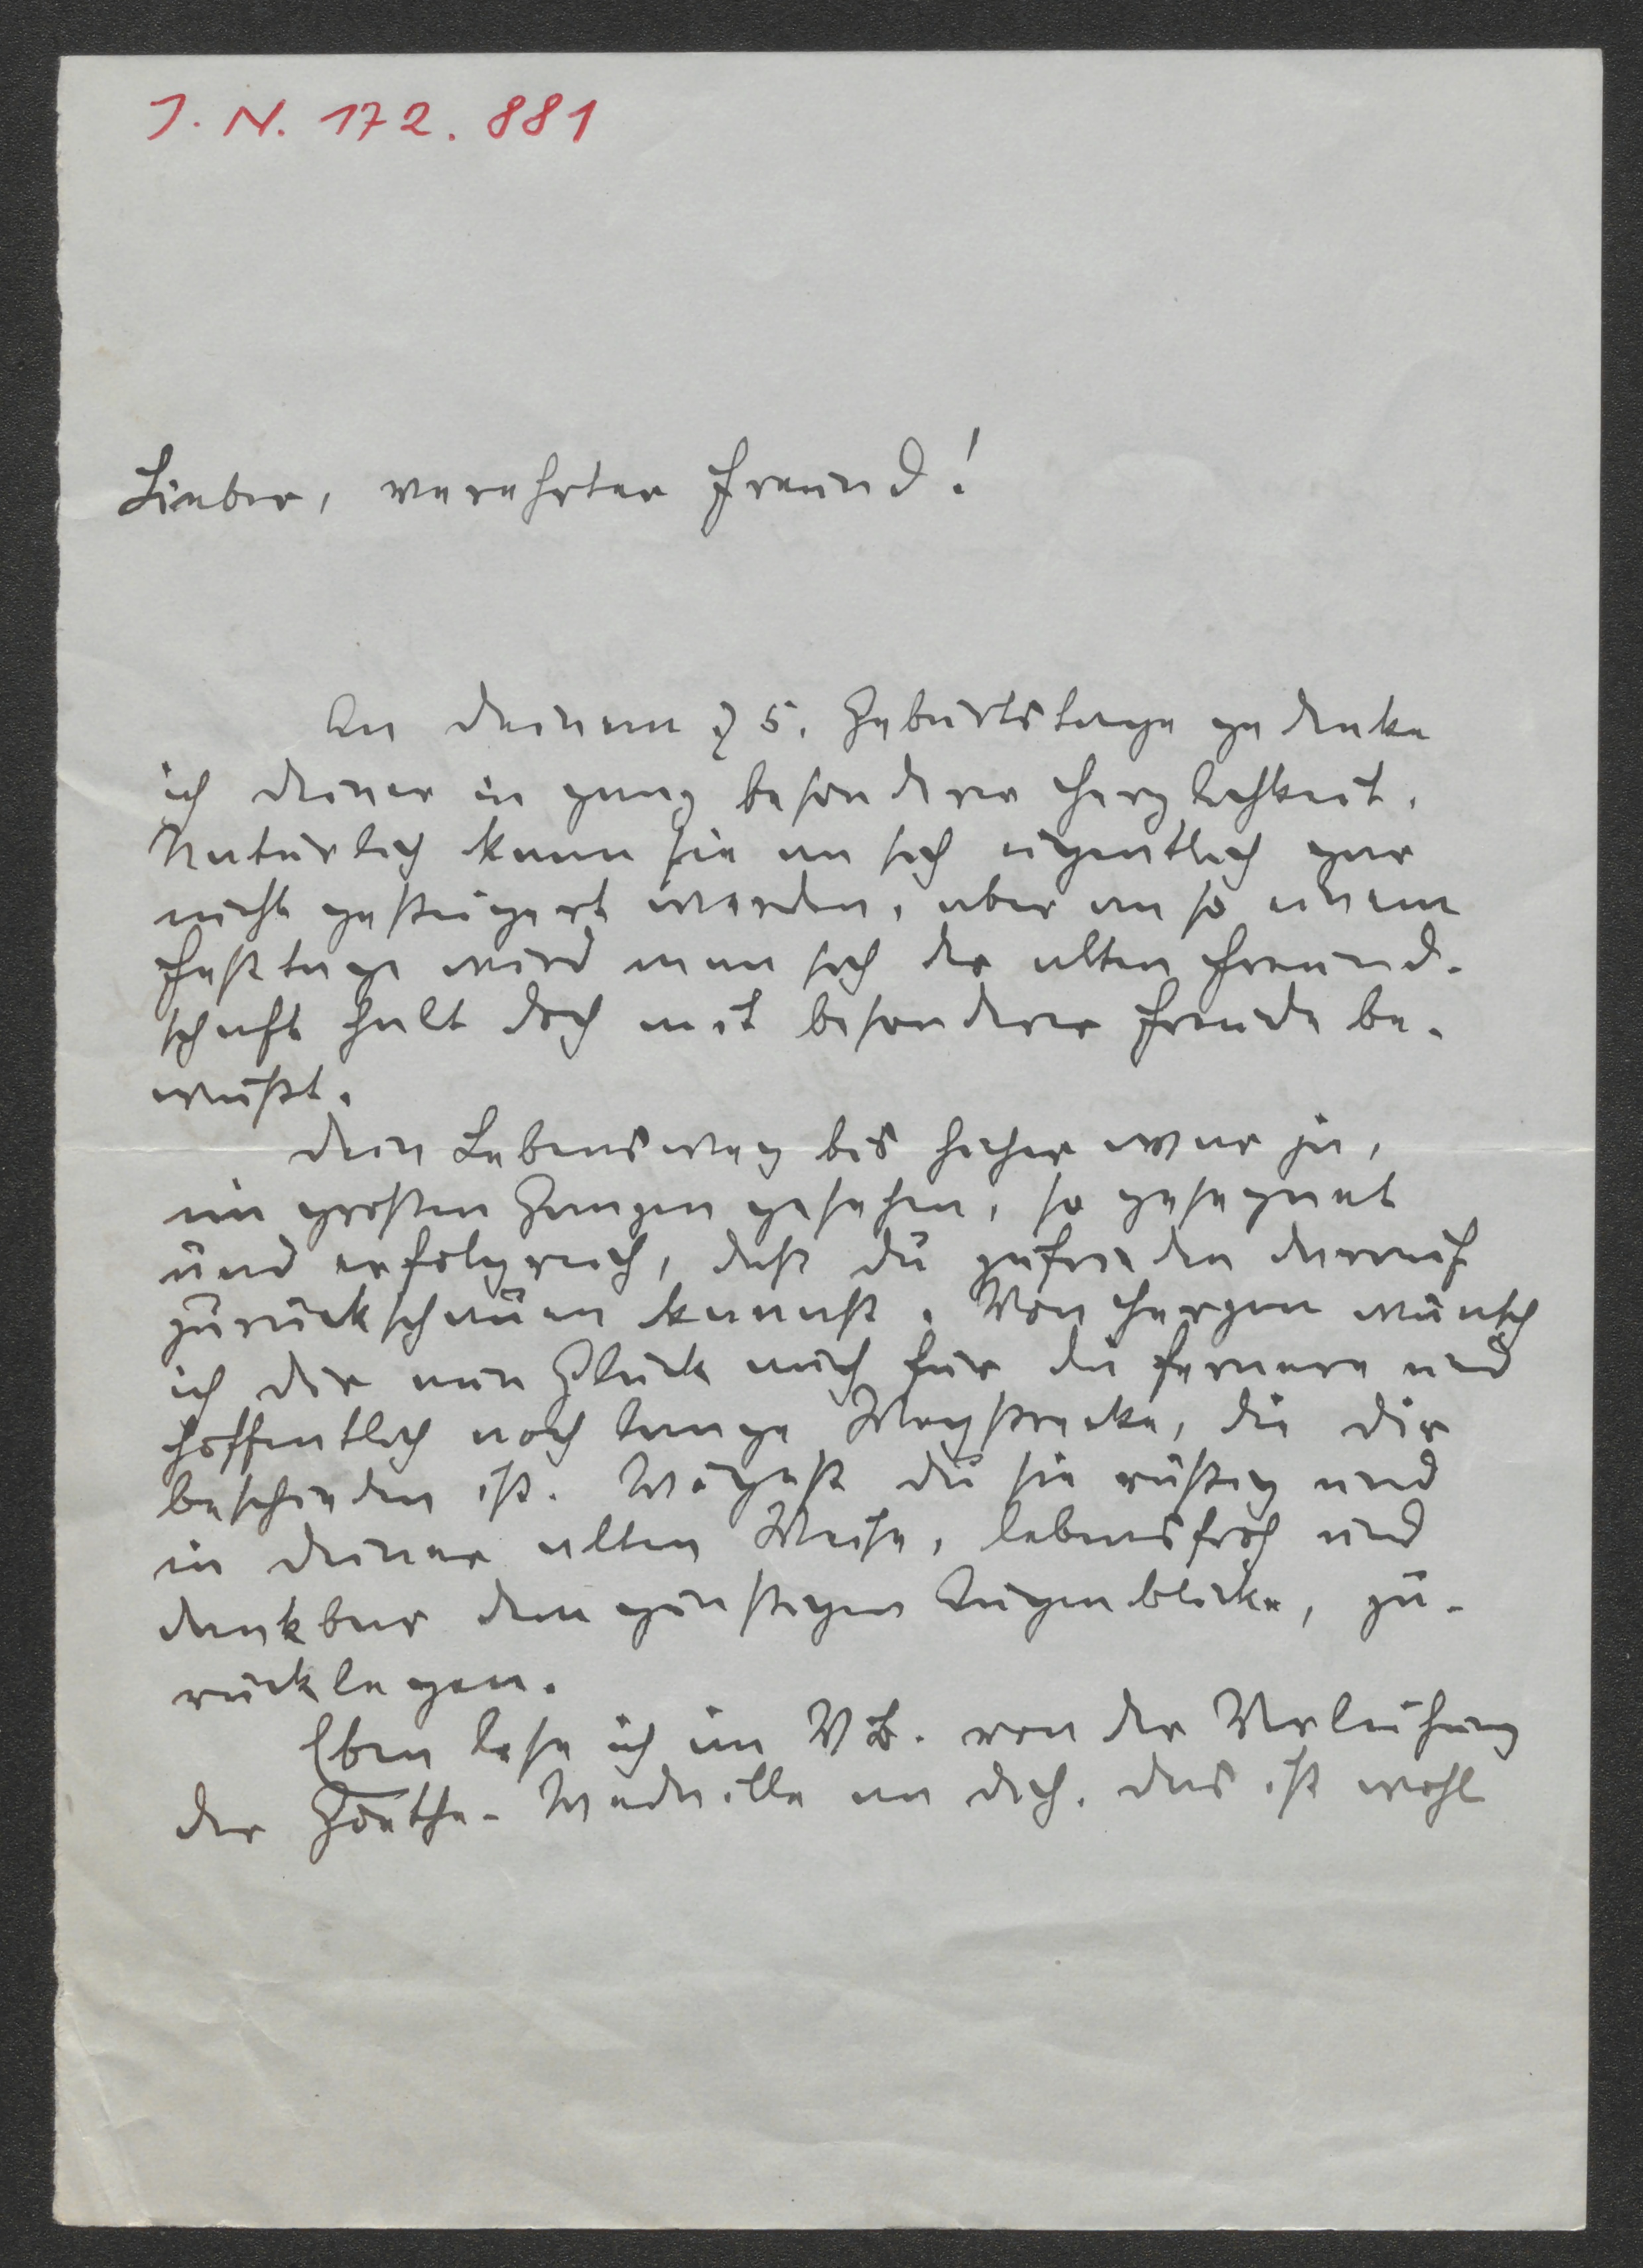 J. N. 172.881
Lieber, verehrter Freund!
An deinem 75. Geburtstage gedenke
ich deiner in ganz besonderer Herzlichkeit.
Natürlich kann sie an sich eigentlich gar
nicht gesteigert werden, aber an so einem
Festtage wird man sich der alten Freund-
schaft halt doch mit besonderer Freude be-
wußt.
Dein Lebensweg bis hieher war ja,
im großen Ganzen gesehen, so gesegnet
und erfolgreich, daß du zufrieden darauf
zurückschauen kannst. Von Herzen wünsch
ich dir nun Glück auch für die fernere und
hoffentlich noch lange Wegstrecke, die dir
beschieden ist. Mögest du sie rüstig und
in deiner alten Weise, lebensfroh und
dankbar dem günstigen Augenblicke, zu-
rücklegen.
Eben lese ich im VB. von der Verleihung
der Goethe-Medaille an dich. Das ist wohl